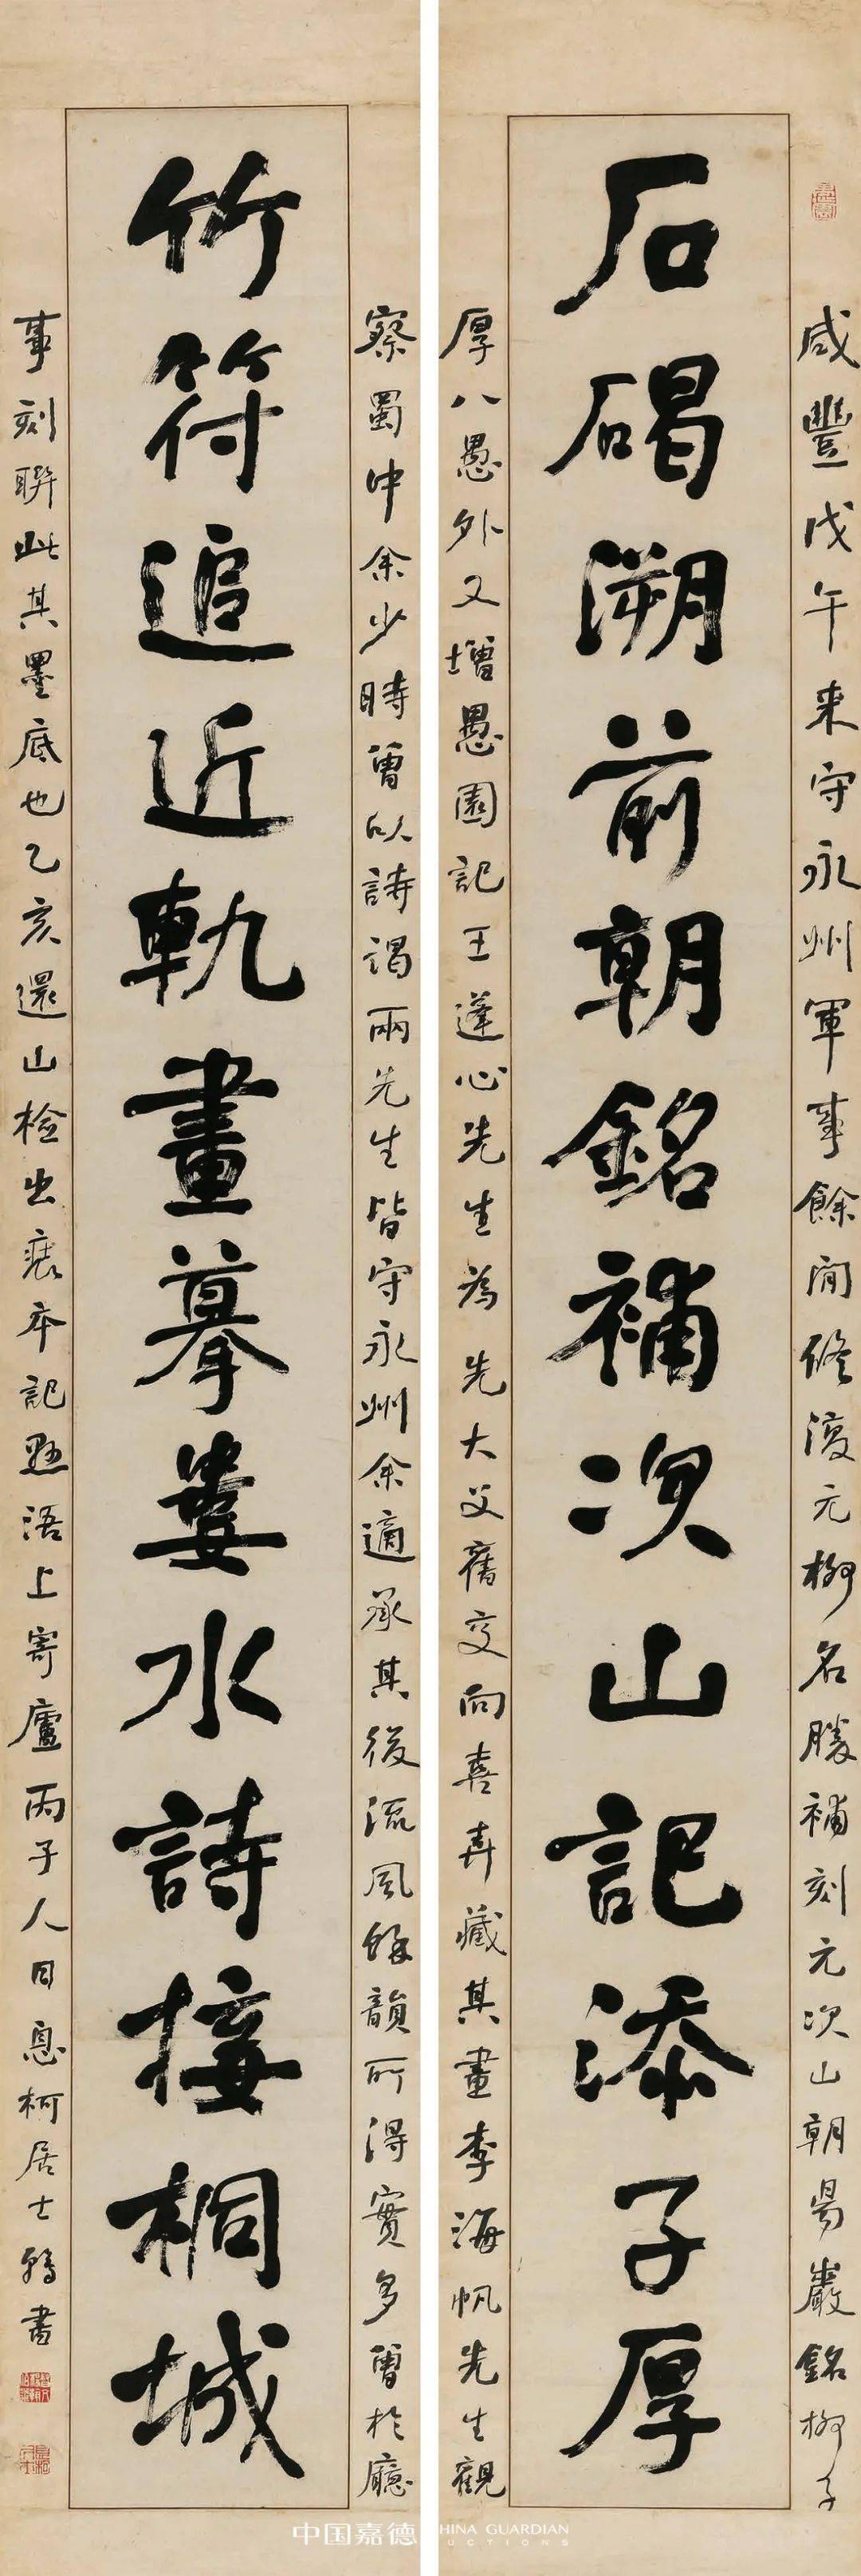 咸豐戊午来守永州軍事餘閒修復元柳名勝補刻元次山朝陽巖銘柳子
石碣溯前朝銘補次山記添子厚
厚八愚外又增愚園記王蓬心先生為先大父舊交向喜弆藏其畫李海帆先生觀
察蜀中余少時曾以詩謁兩先生皆守永州余適承其後流風餘韻所得實多曾於廳
竹符追近軌畫摹婁水詩接桐城
事刻聯此其墨底也乙亥還山檢出裱本記此浯上寄廬丙子人日息柯居士翰書
中国嘉德 CHINA GUARDIAN AUCTIONS